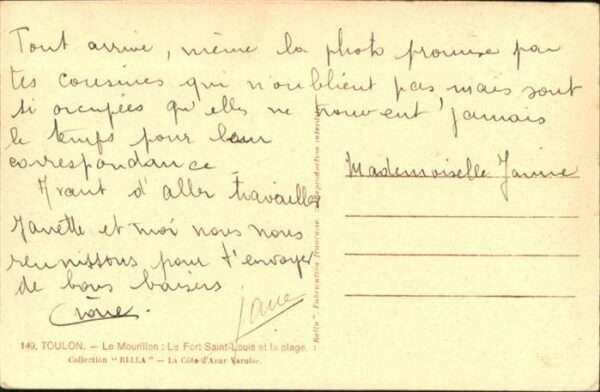 Tout arrive, même la photo promise par
tes cousines qui n'oublient pas mais sont
si occupées qu'elles ne trouvent jamais
le temps pour leur
correspondance
Avant d'aller travailler
Janette et moi nous nous
reunissons pour t'envoyer
de bons baisers
Mademoiselle Janine
149. TOULON. - Le Mourillon: Le Fort Saint-Louis et la plage.
Collection "BELLA" - La Côte d'Azur Varoise.
Bella". Fabrication française. Reproduction interdite